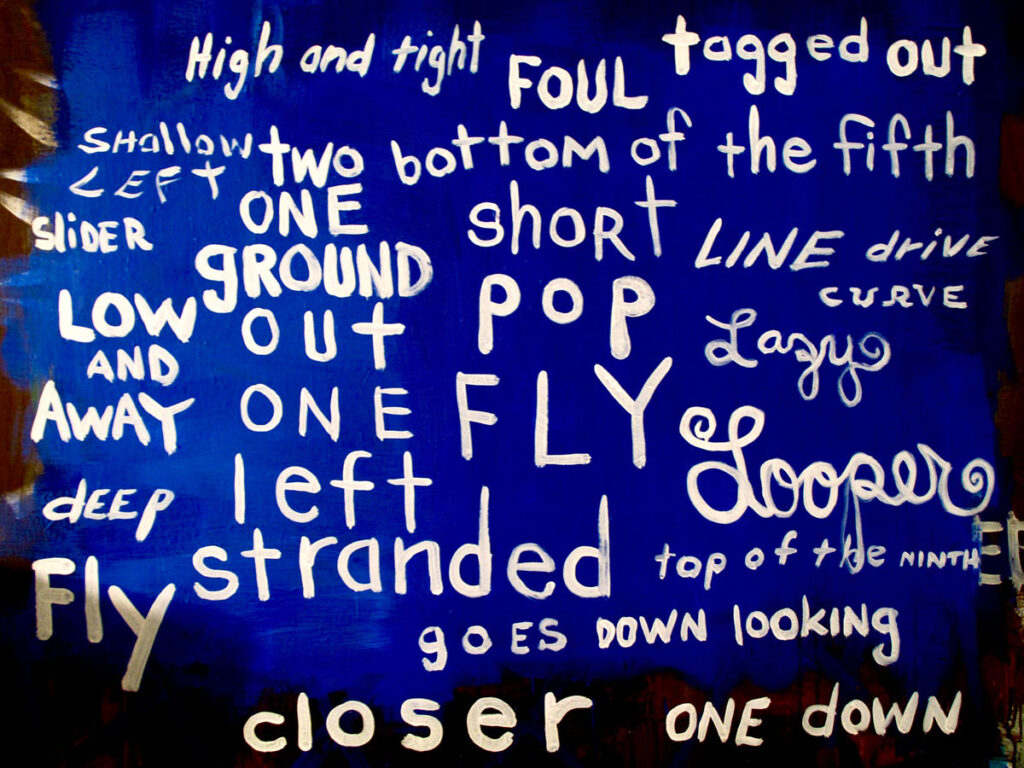 High and tight
FOUL
tagged out
SHallow
LEFT
two
bottom of the fifth
ONE
shoRt
SLiDER
gROUND
LINE drivE
CURVE
LOW
AND
AWAY
OUT
POP
Lazy
ONE
FLY
Looper
dEEp
left
stranded
top of the NINTH
Fly
goES DOWN lookiNg
closer
ONE dowN